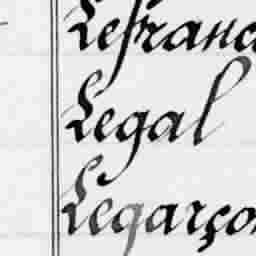 Lefranc
Legal
Legarço